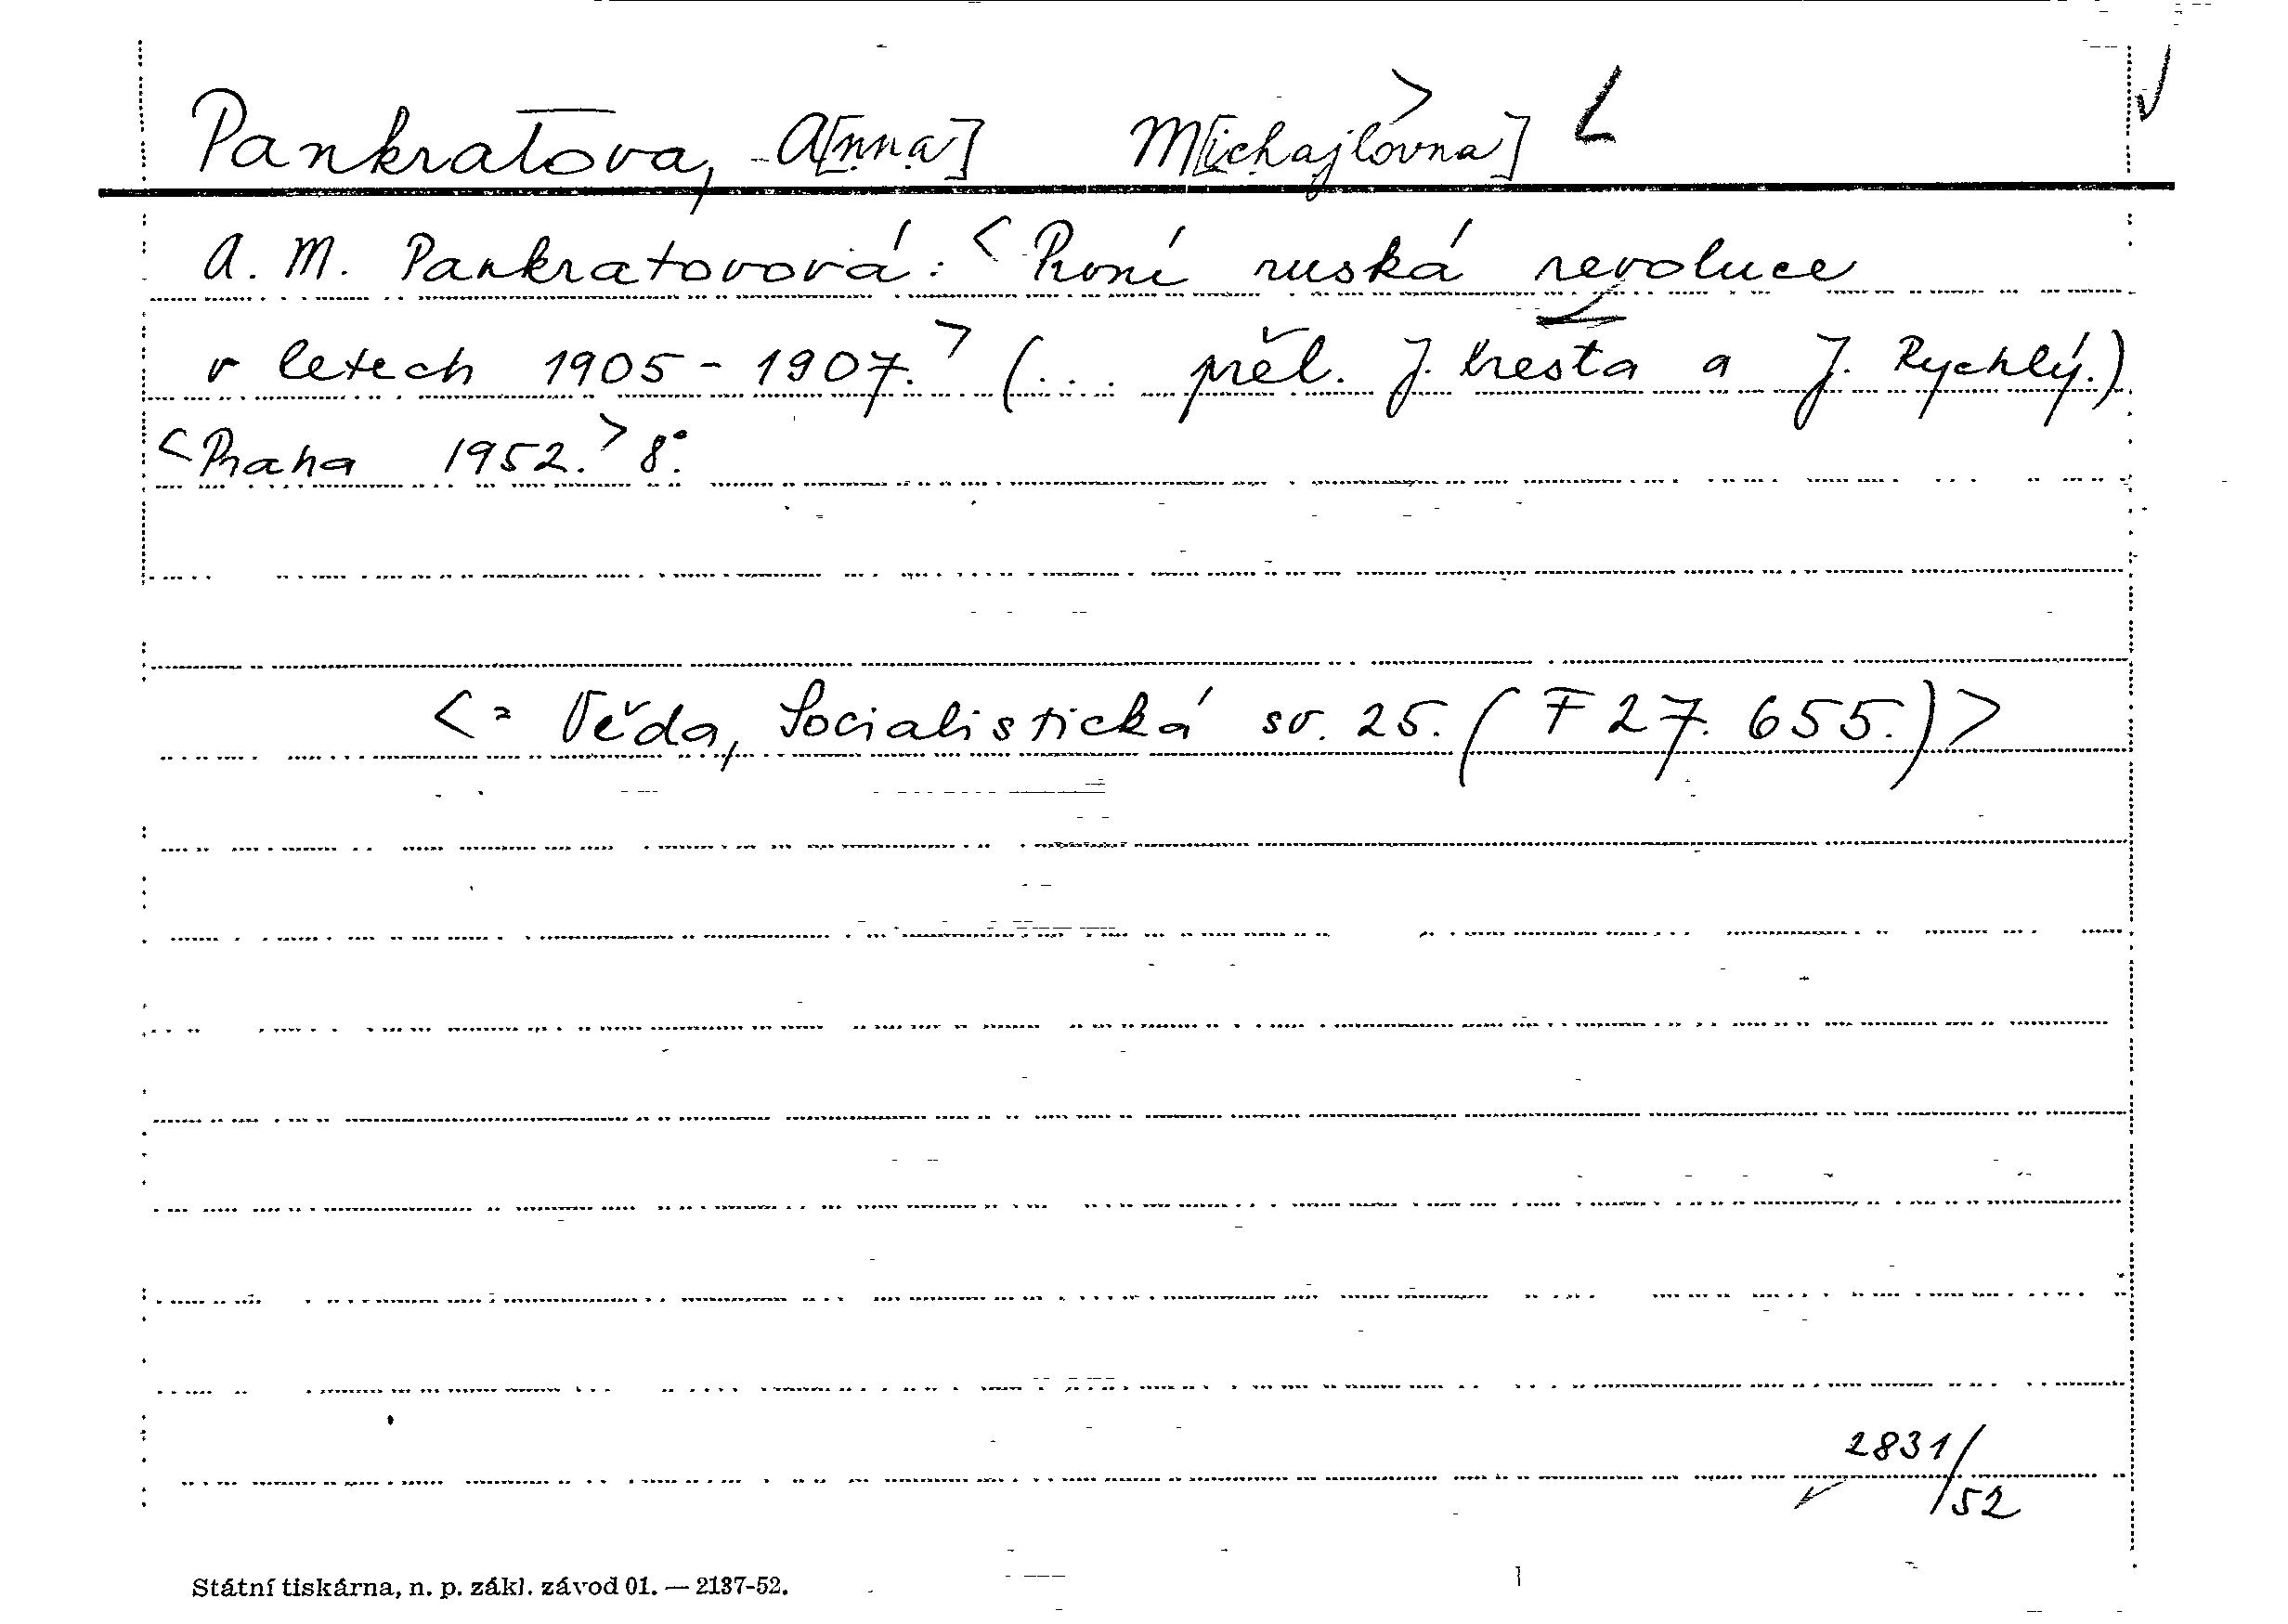 Pankratova, A[nna] M[ichajlovna]
A. M. Pankratovová: <První ruská revoluce
v letech 1905-1907.> (... přel. J. Kresta a J. Rychlý.)
<Praha 1952.> 8°.
<= Věda, Socialistická sv. 25. (F 27.655.)>
2831/
52
Státní tiskárna, n. p. zákl. závod 01. — 2137-52.